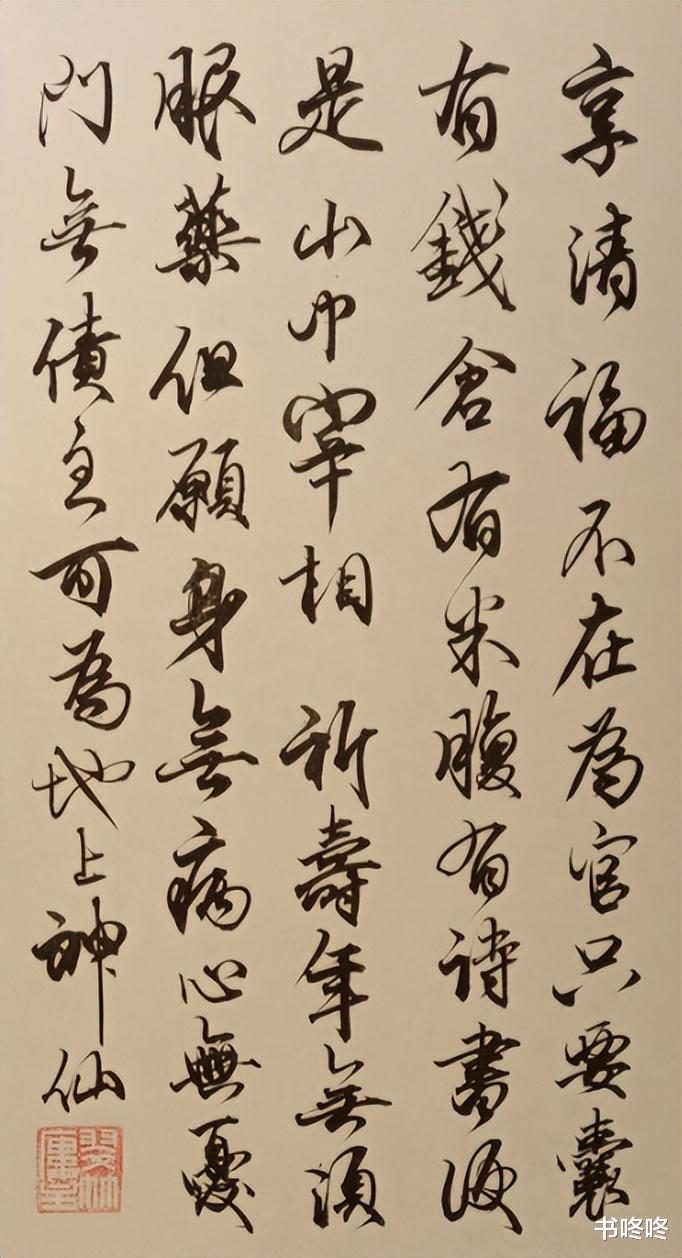 享清福不在為官只要囊
有錢倉有米腹有詩書便
是山中宰相祈壽年無須
服藥但願身無病心無憂
門無債主可為地上神仙
书咚咚